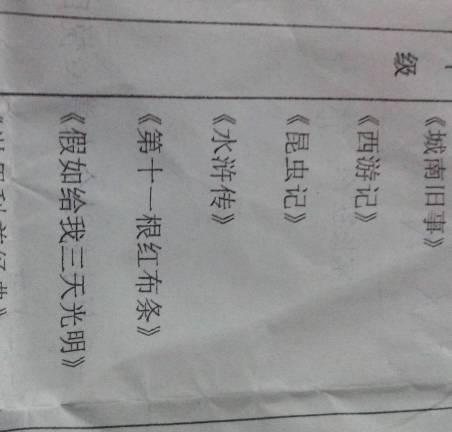 级
《城南旧事》
《西游记》
《昆虫记》
《水浒传》
《第十一根红布条》
《假如给我三天光明》